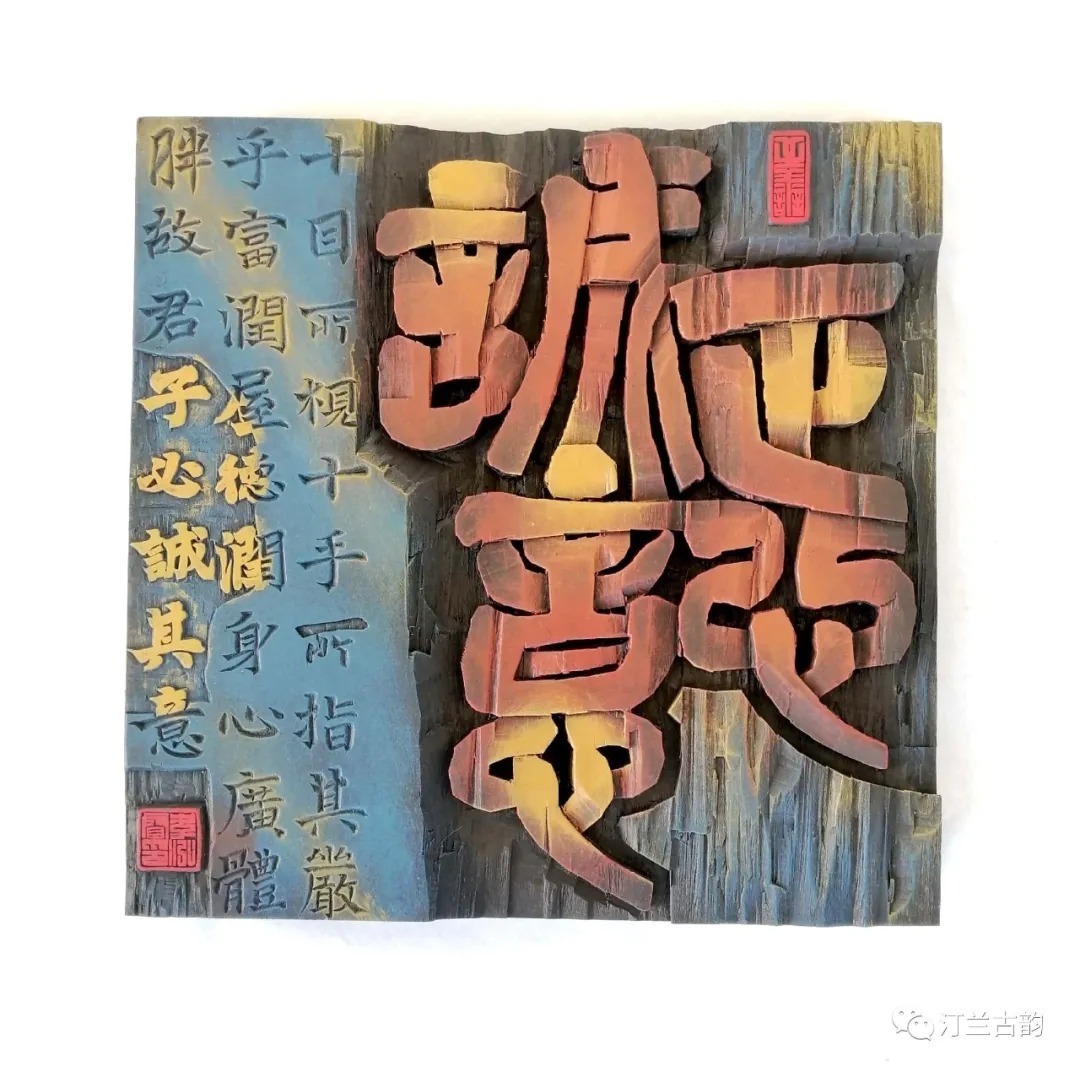 正心
誠意
十目所視十手所指其嚴
乎富潤屋德潤身心廣體
胖故君子必誠其意
汀兰古韵